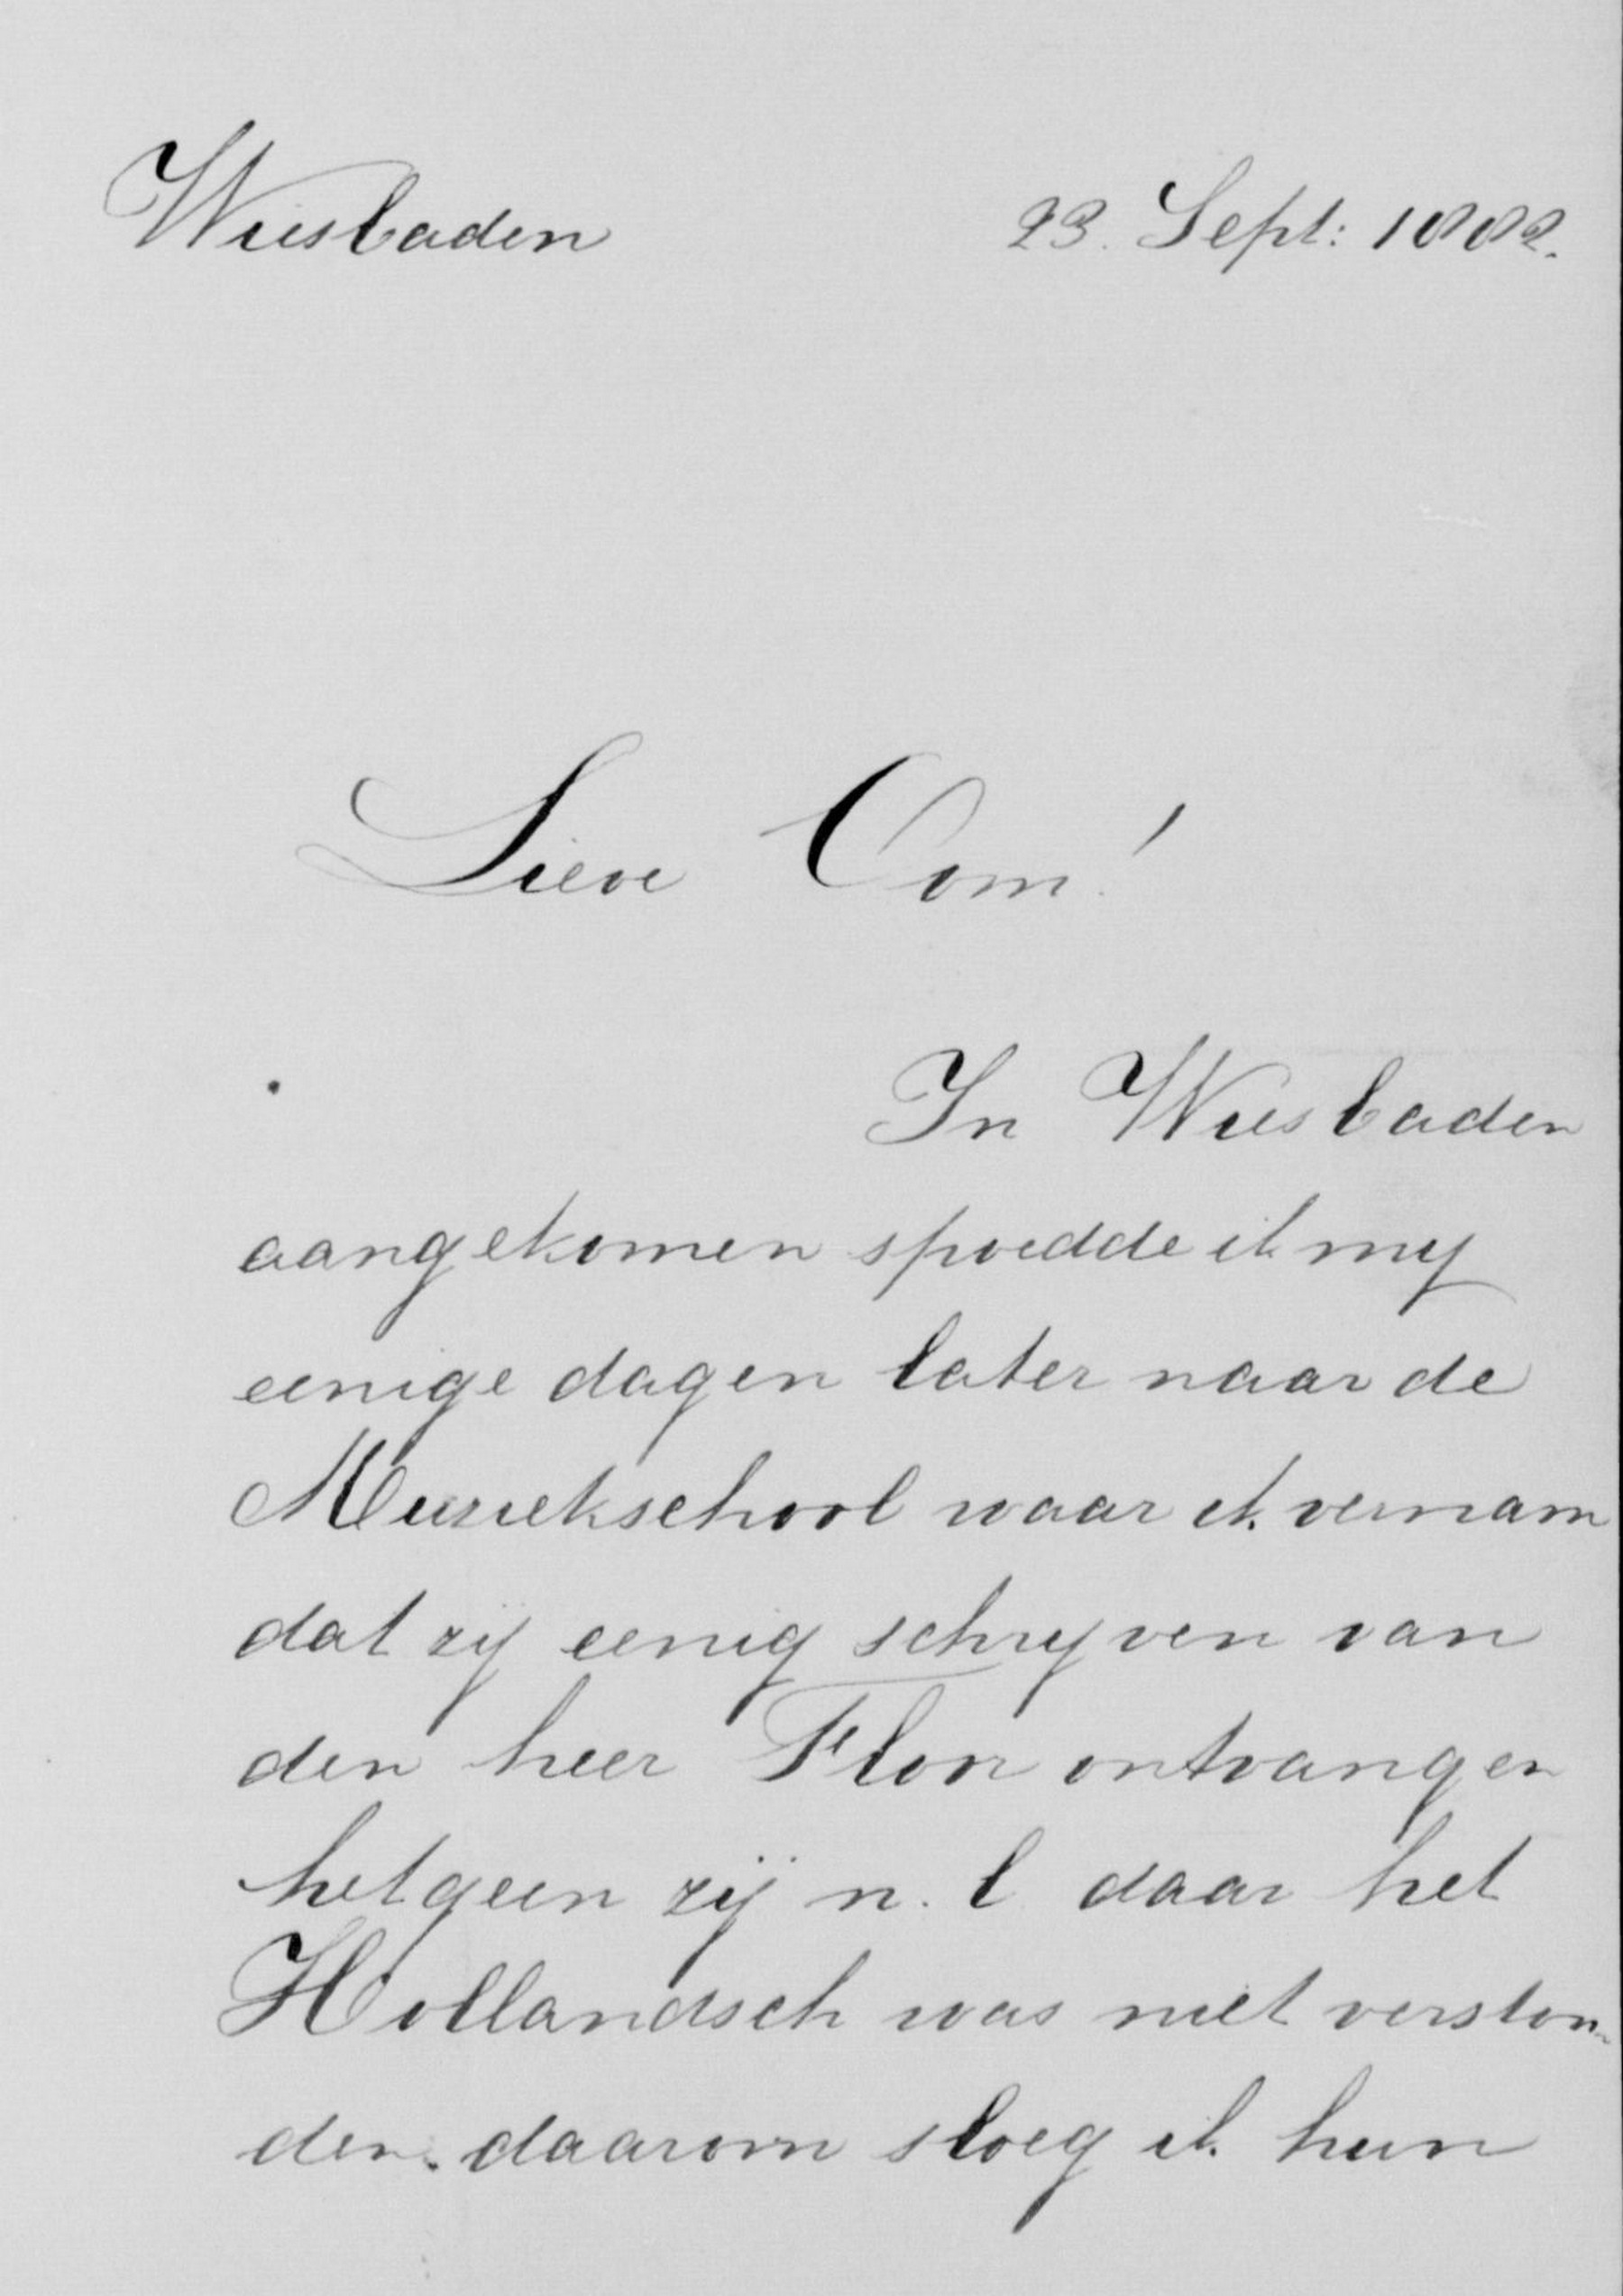 Wiesbaden 23. Sept: 1882.
Lieve Oom!
In Wiesbaden
aangekomen spoedde ik mij
eenige dagen later naar de
Muziekschool waar ik vernam
dat zij eenig schrijven van
den heer Flon ontvangen
hetgeen zij n. l daar het
Hollandsch was niet verston-
den. daarom sloeg ik hun